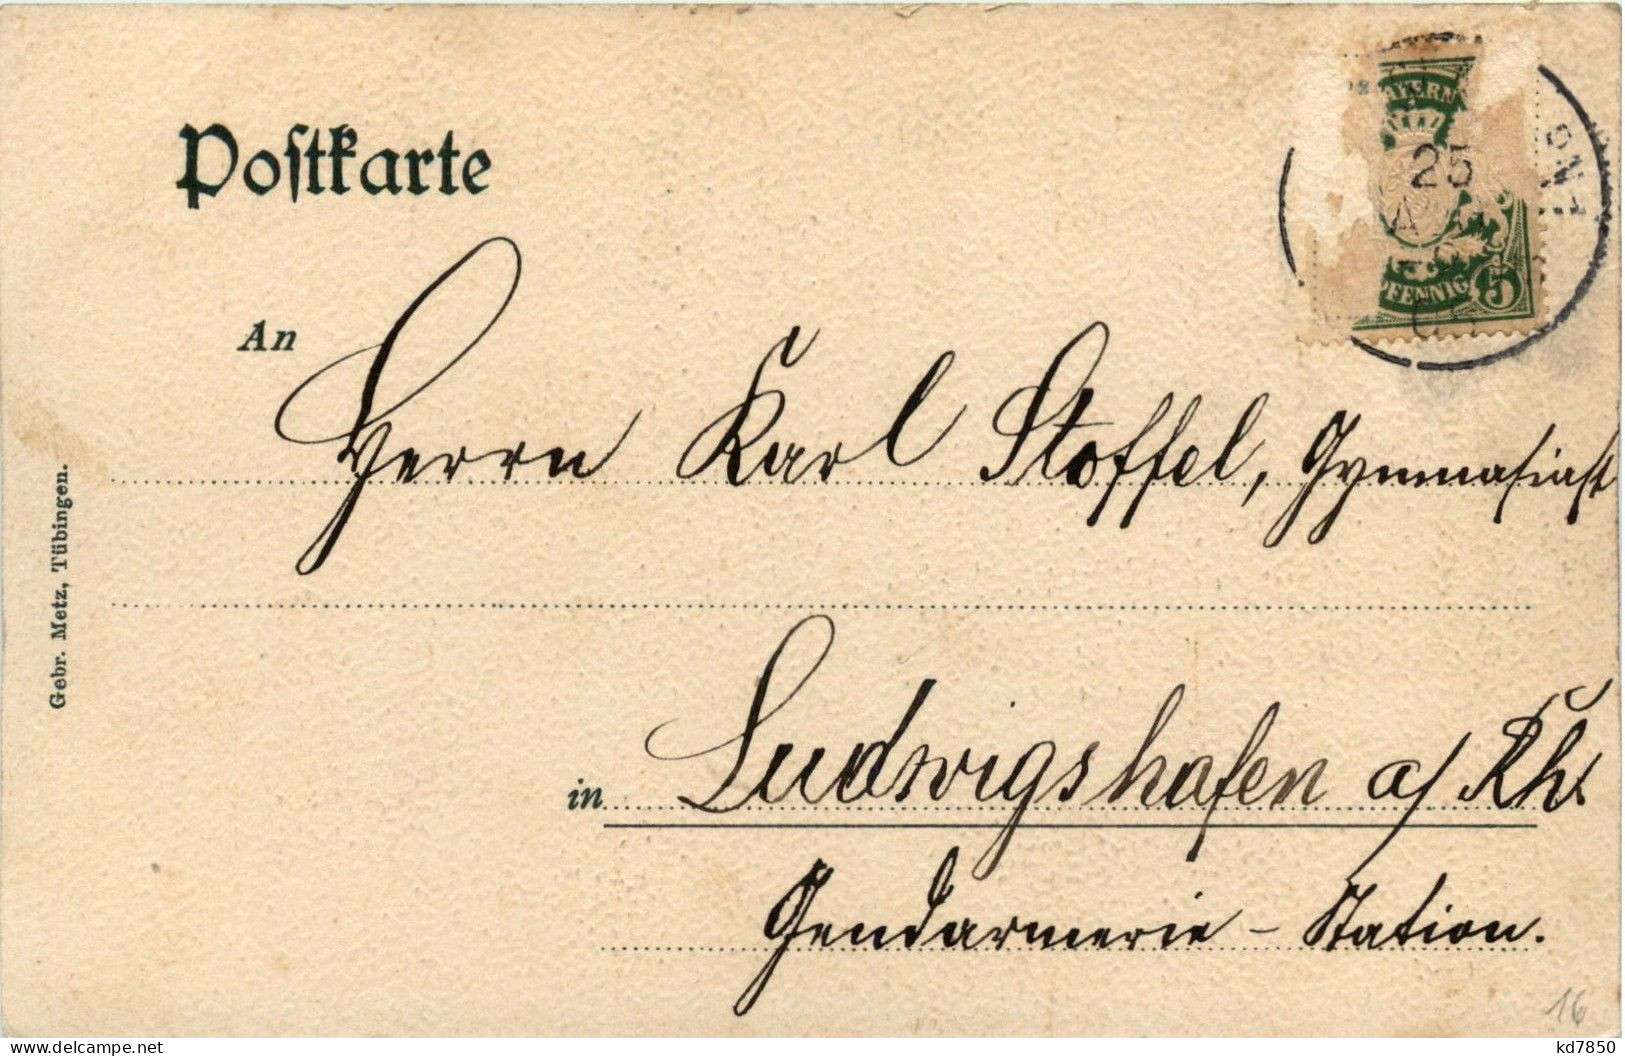 Postkarte
BAYERN
25
5
PFENNIG
An
Herrn Karl Stoffel, Gymnasiast
in Ludwigshafen a/ Rh.
Gendarmerie - Station.
Gebr. Metz, Tübingen.
16
kd7850